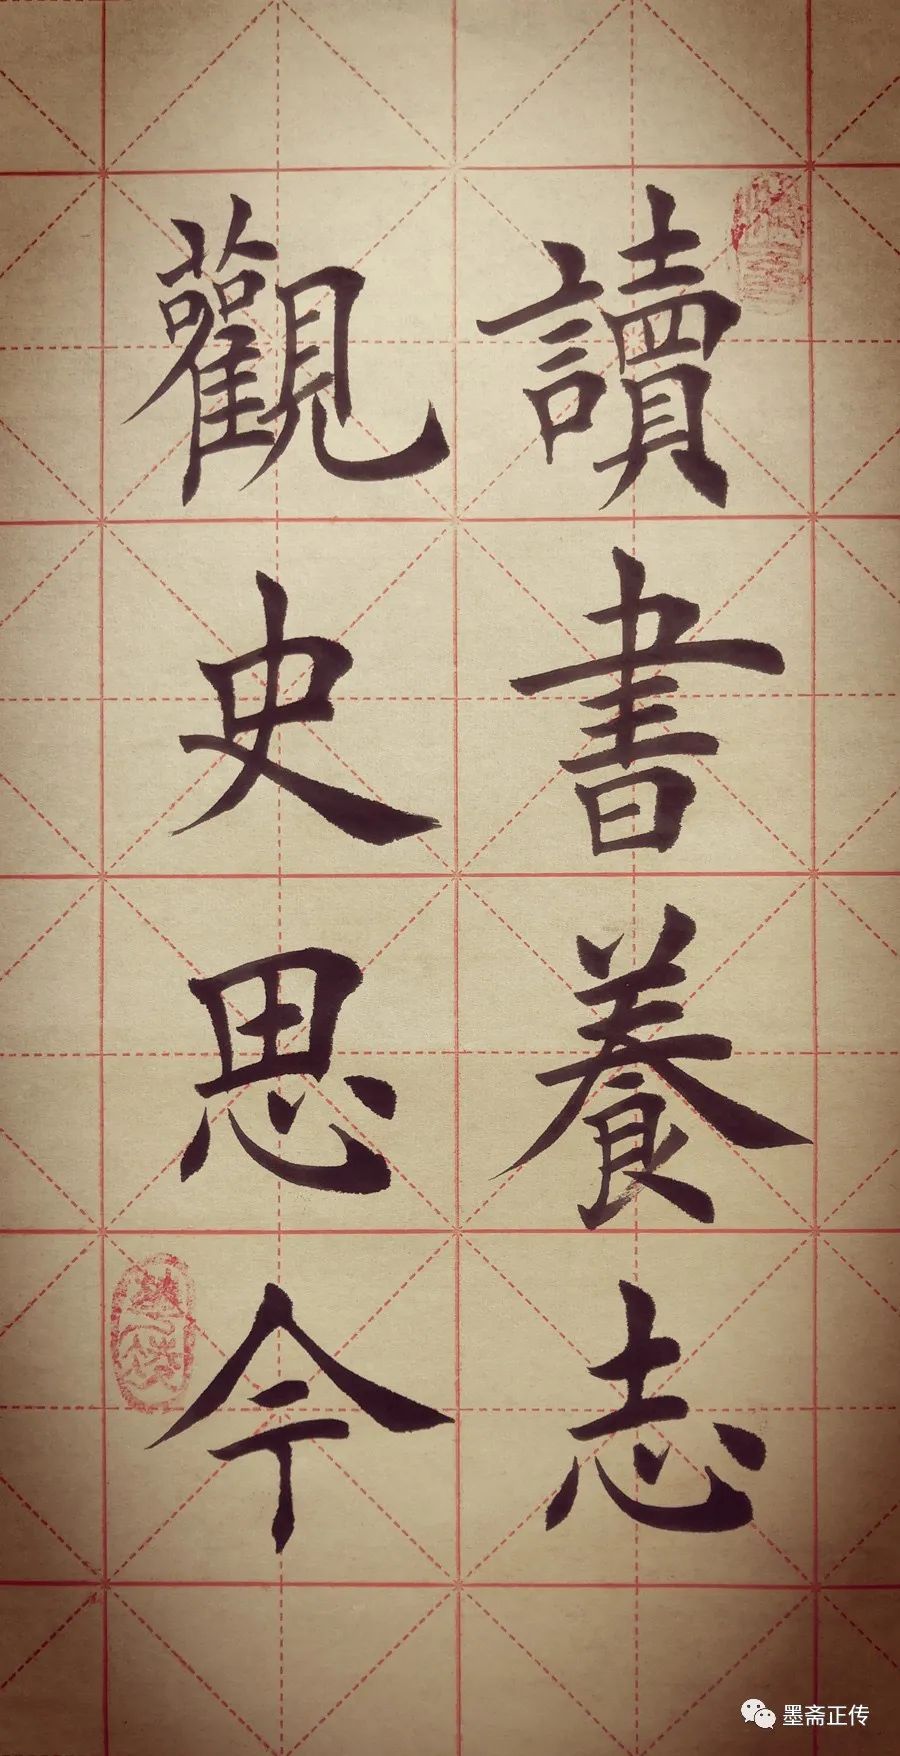 讀書養志
觀史思今
墨斋正传